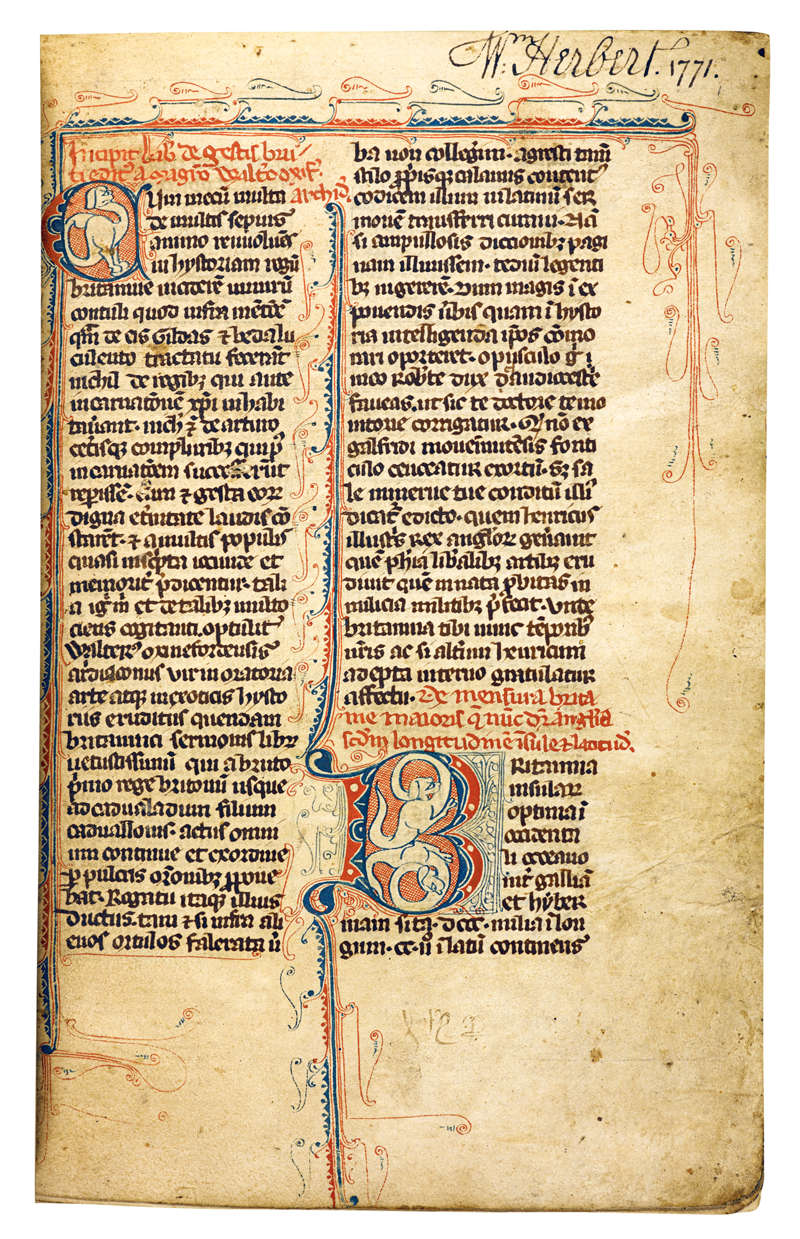 Wm Herbert. 1771.
Incipit lib' de gestis bru
ti edit' a mag̃ro Walt'o oxif'.
archid'.
Cum mecũ multa
de multis sepius
animo reuolũes
in hystoriam regũ
britannie inciderẽ mirũ
contuli quod infra mẽtiõẽ
q̃m de eis Gildas ⁊ beda lu
culento tractatu fecerãt
nichil de regibʒ qui ante
incarnationẽ xp̃i inhabi
tauerant. nich' ẽ de arturo
ceterisqʒ compluribʒ qui p'
incarnatõem successerũt
reperissẽ. Cum ⁊ gesta eorʒ
digna et̃nitate laudis cõ
starent. ⁊ a multis populis
quasi inscpta iocunde et
memorit' p̃dicentur. tali
a ig' m' et de talibʒ multo
ciens cogitanti. optulit
Walterꝰ oxinefordensis
archidiaconus vir in oratoria
arte atqʒ in exoticis hysto
riis eruditus quendam
britannici sermonis librũ
uetustissimũ qui a bruto
p̃mo rege britonũ usque
ad cadualadrum filium
caduallonis. actus omni
um continue et ex ordine
ꝑ pulcris or̃onibʒ ꝓpone
bat. Rogatu itaqʒ illius
ductus. tam ⁊ si infra ali
enos ortulos falerata ũ
ba non collegerim. agresti tam̃
stilo ꝓpriisqʒ calamis content'
codicem illum in latinũ ser
monẽ transferri curaui. Nã
si ampullosis diccionibʒ pagi
nam illinissem. tediũ legenti
bʒ ingererẽ. dum magis ĩ ex
ponendis ũbis quam ĩ hysto
ria intelligenda ip̃os cõmo
rari oporteret. opusculo g' ĩ
meo Rob'te dux claudiocest'e
faueas. ut sic te doctore te mo
nitore corrigatur. Q' nõ ex
galfridi monemutẽsis fonti
culo censeatur exortũ. Sʒ sa
le minerue tue conditũ illiꝰ
dicat' edicto. quem henricus
illustris Rex anglorʒ geñauit
quẽ ph'ia lib'alibʒ artibʒ eru
diuit quẽ innata ꝓbitas in
milicia militibʒ p̃fecit. Unde
britannia tibi nunc tẽporibʒ
nr̃is ac si alt'um henricum
adepta interno gratulatur
affectu. De mensura brita
nie maioris q̃ nũc dr̃ anglia
scd̃m longitudinẽ ĩsule ⁊ latitud'.
BRitannia
insularʒ
optima ĩ
occidenta
li occeano
int' galliã
et hyber
niam sita. dccc. milia ĩ lon
gum. cc. ũ ĩ latũ continens